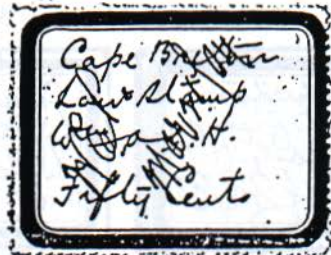 Cape Breton
Law Stamp
H.
Fifty Cents